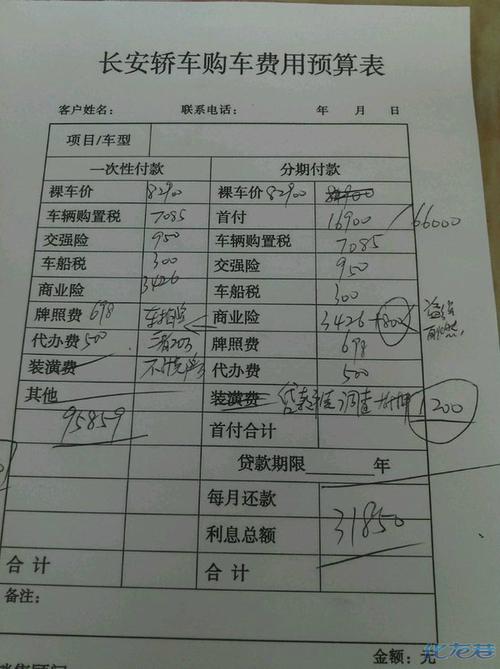 长安轿车购车费用预算表
客户姓名： 联系电话： 年 月 日
项目/车型
一次性付款 分期付款
裸车价 82900 裸车价 82900 81900
车辆购置税 7085 首付 16900 / 66000
交强险 950 车辆购置税 7085
车船税 300 交强险 950
商业险 3426 车船税 300
牌照费 698 商业险 3426 +800
代办费 500 三者20万 牌照费 698
装潢费 代办费 500
其他 装潢费 贷款 调查 1200
95859 首付合计
贷款期限 年
每月还款
利息总额 31850
合计 合计
备注：
金额： 元
化龙巷